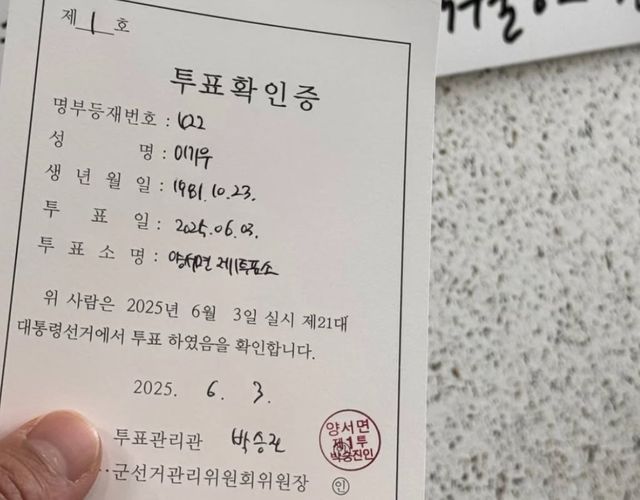 제 1 호
투표확인증
명부등재번호 : 622
성 명 : 이기우
생 년 월 일 : 1981. 10. 23.
투 표 일 : 2025. 06. 03.
투 표 소 명 : 양서면 제1투표소
위 사람은 2025년 6월 3일 실시 제21대
대통령선거에서 투표 하였음을 확인합니다.
2025. 6. 3.
투표관리관 박승진
양서면
제1투
박승진인
군선거관리위원회위원장 인